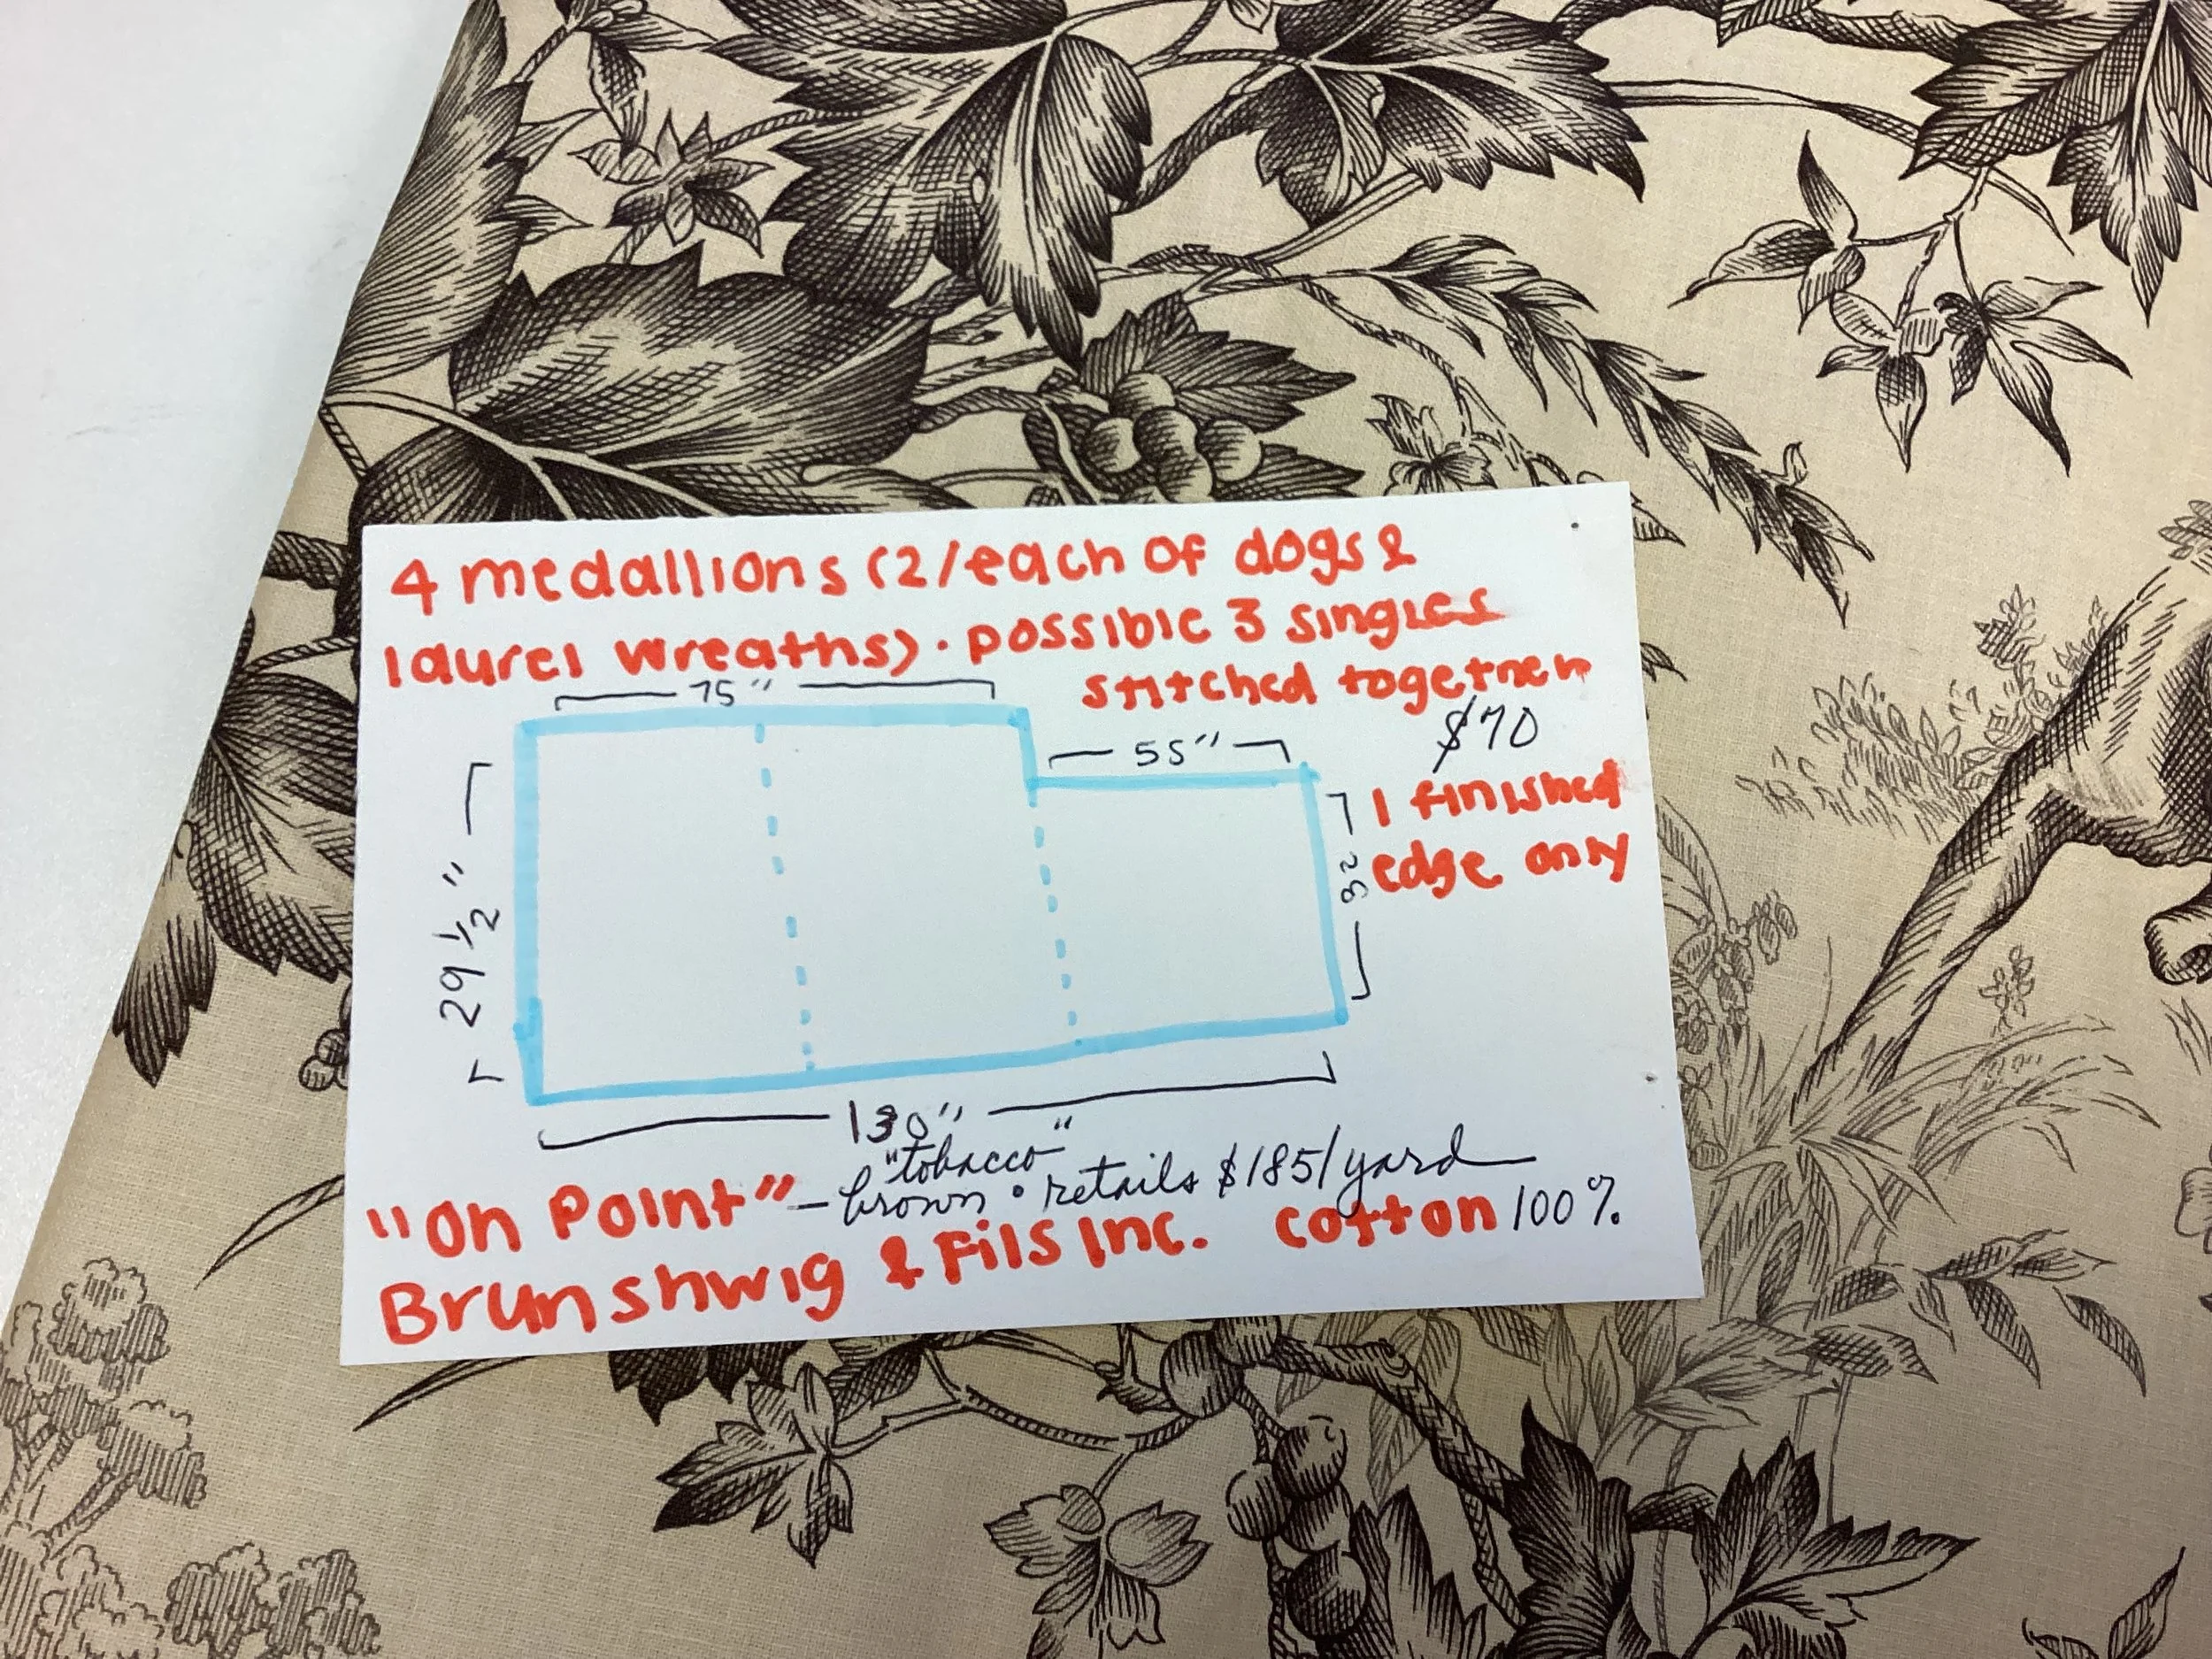 4 medallions (2/each of dogs &
laurel wreaths) · possible 3 singles
stitched together
75"
$70
55"
1 finished
edge only
29 1/2"
28
130"
"tobacco"
"On Point" – brown • retails $185/yard
Brunshwig & Fils Inc. cotton 100%